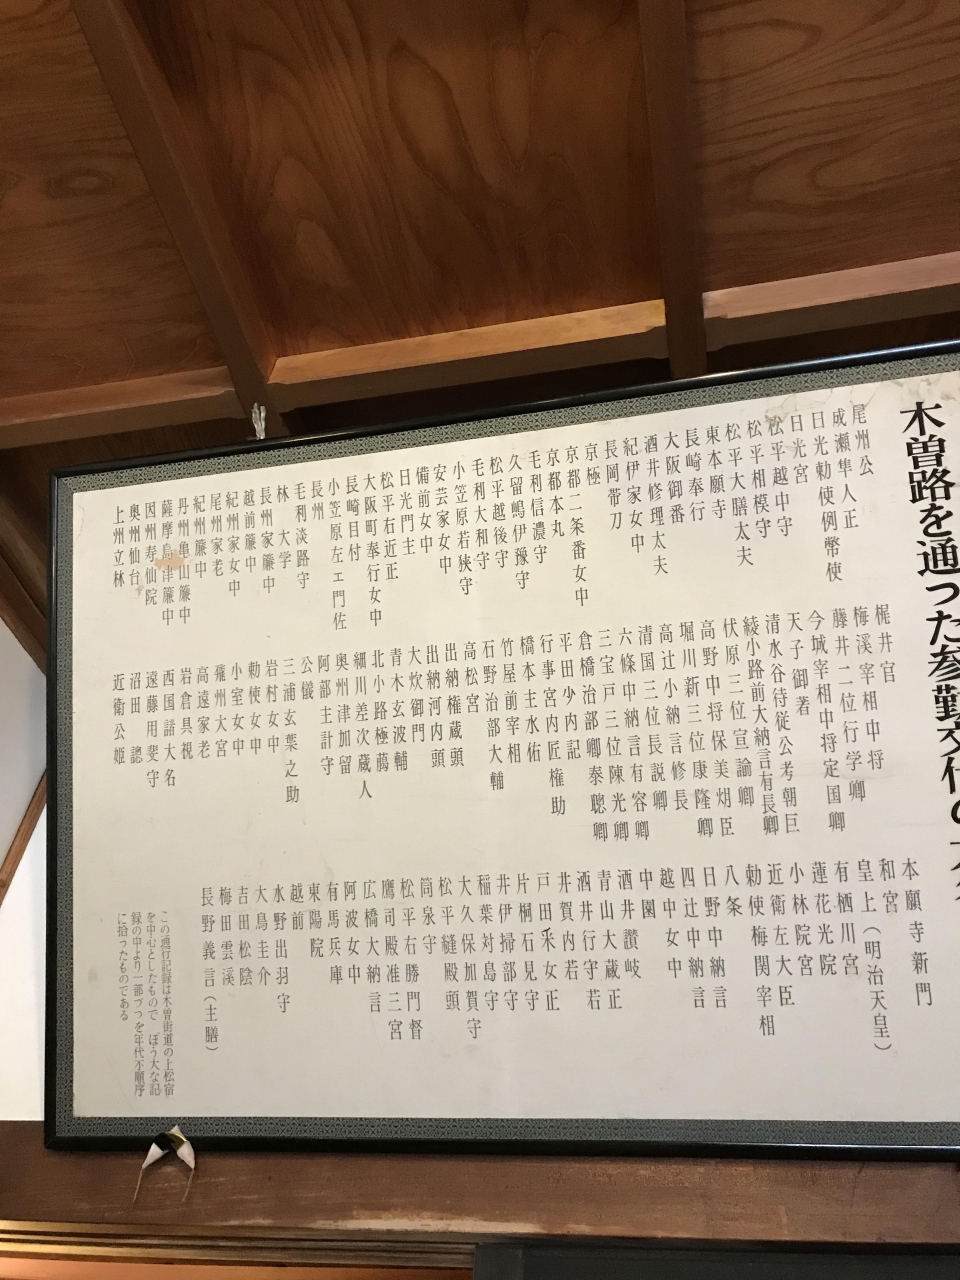 木曽路を通った参勤交代の
尾州公
成瀬隼人正
日光勅使例幣使
日光宮
松平越中守
松平相模守
松平大膳太夫
東本願寺
長崎奉行
大阪御番
酒井修理太夫
紀伊家女中
長岡帯刀
京極
京都二条番女中
京都本丸
毛利信濃守
久留嶋伊豫守
松平越後守
毛利大和守
小笠原若狭守
安芸家女中
備前女中
日光門主
松平右近正
大阪町奉行女中
長崎目付
小笠原左エ門佐
長州
毛利淡路守
林 大学
長州家簾中
越前簾中
紀州家女中
尾州家老
紀州簾中
丹州亀山簾中
薩摩島津簾中
因州寿仙院
奥州仙台
上州立林
梶井官
梅溪宰相中将
藤井二位行学卿
今城宰相中将定国卿
天子御著
清水谷待従公考朝巨
綾小路前大納言有長卿
伏原三位宣諭卿
高野中将保美
堀川新三位康隆卿
高辻小納言修長
清国三位長説卿
六條中納言有容卿
三宝戸三位陳光卿
倉橋治部卿泰聰卿
平田少内記
行事宮内匠権助
橋本主水佑
竹屋前宰相
石野治部大輔
高松宮
出納権蔵頭
出納河内頭
大炊御門
青木玄波輔
北小路極﨟
細川差次蔵人
奥州津加留
阿部主計守
公儀
三浦玄葉之助
岩村女中
勅使女中
小室女中
大宮
高遠家老
岩倉具視
西国諸大名
遠藤用斐守
沼田 聰
近衛公姫
本願寺新門
和宮
皇上（明治天皇）
有栖川宮
蓮花光院
小林院宮
近衛左大臣
勅使梅関宰相
八条
日野中納言
四辻中納言
越中女中
中園
酒井讃岐
青山大蔵正
酒井行守若
井賀内若
戸田采女正
片桐石見守
井伊掃部守
稲葉対島守
大久保加賀守
松平縫殿頭
筒泉守
松平右勝門督
鷹司殿准三宮
広橋大納言
阿波女中
有馬兵庫
東陽院
越前
水野出羽守
大鳥圭介
吉田松陰
梅田雲溪
長野義言（主膳）
この通行記録は木曽街道の上松宿
を中心としたもので ぼう大な記
録の中より一部づつを年代不順序
に拾ったものである